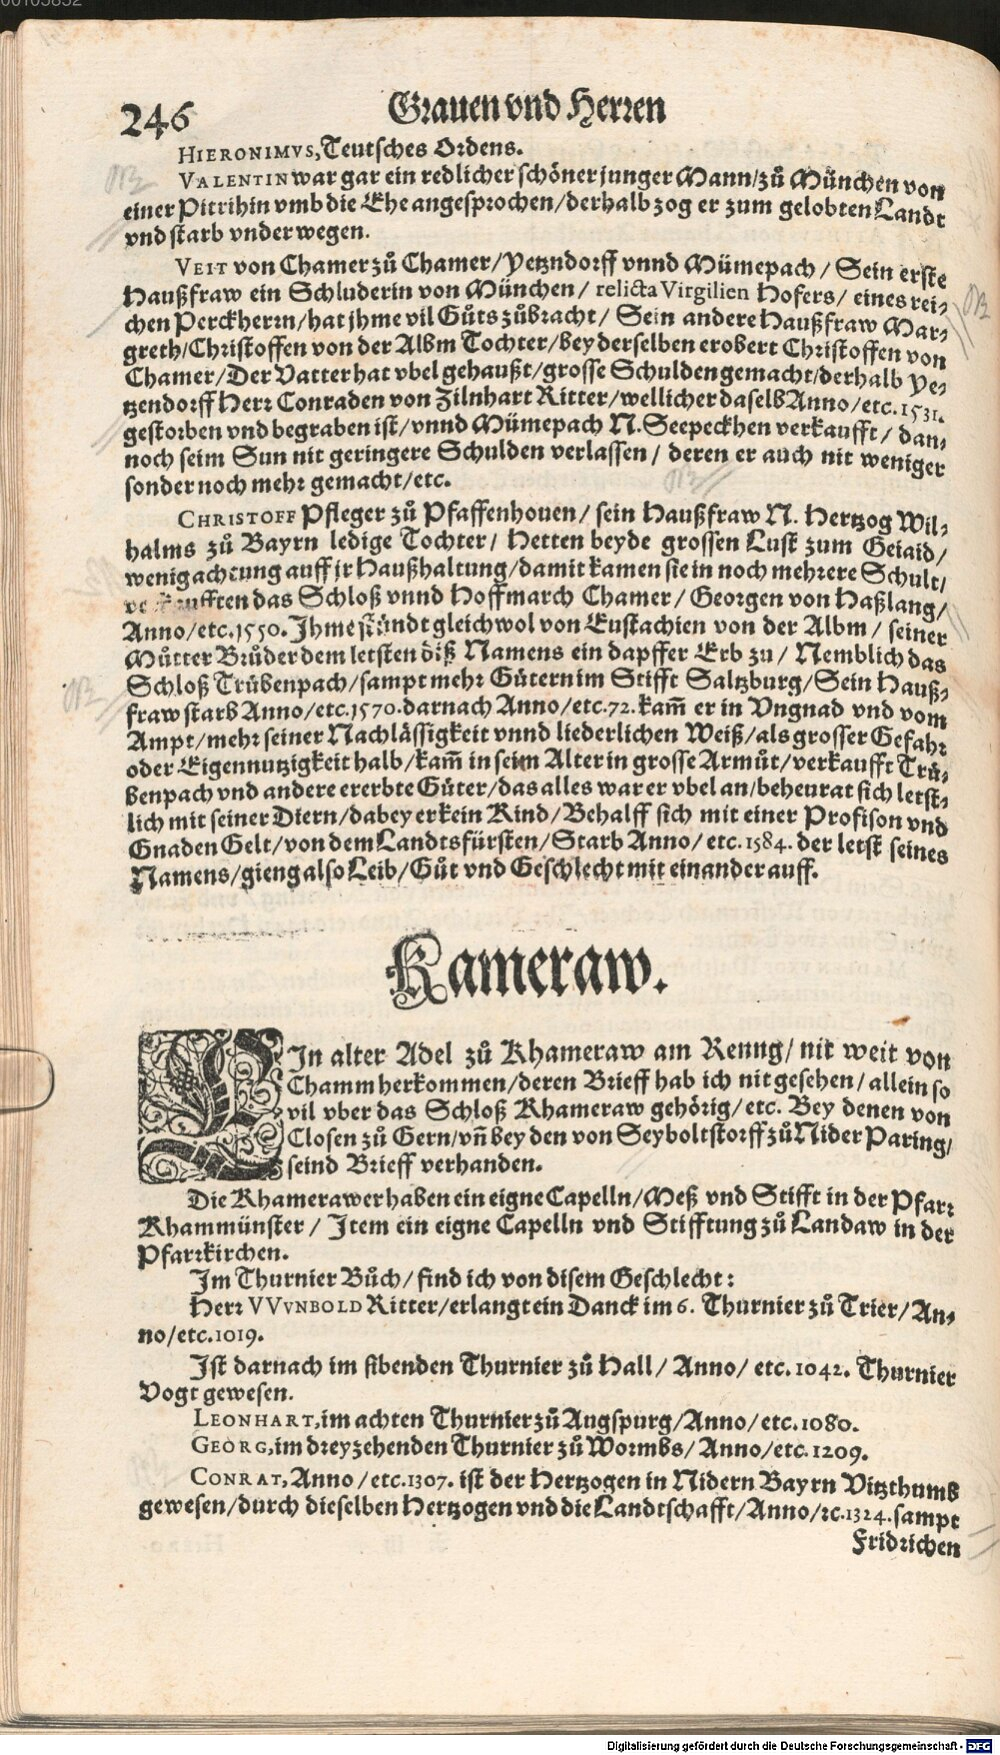 00103832
246 Grauen vnd Herren
HIERONIMVS, Teutsches Ordens.
VALENTIN war gar ein redlicher schöner junger Mann/zů München von
einer Pitrihin vmb die Ehe angesprochen/derhalb zog er zum gelobten Landt
vnd starb vnderwegen.
VEIT von Chamer zů Chamer/Yetzndorff vnnd Mümepach/ Sein erste
Haußfraw ein Schluderin von München/ relicta Virgilien Hofers/ eines rei-
chen Perckherrn/hat jhme vil Gůts zůbracht/ Sein andere Haußfraw Mar-
greth/Christoffen von der Albm Tochter/bey derselben erobert Christoffen von
Chamer/Der Vatter hat vbel gehaußt/grosse Schulden gemacht/derhalb Ye-
tzendorff Herr Conraden von Zilnhart Ritter/wellicher daselb Anno/etc.1531.
gestorben vnd begraben ist/vnnd Mümepach N. Seepeckhen verkaufft/ dan-
noch seim Sun nit geringere Schulden verlassen/ deren er auch nit weniger
sonder noch mehr gemacht/etc.
CHRISTOFF Pfleger zů Pfaffenhouen/ sein Haußfraw N. Hertzog Wil-
halms zů Bayrn ledige Tochter/ Hetten beyde grossen Lust zum Geiaid/
wenig achtung auff jr Haußhaltung/damit kamen sie in noch mehrere Schult/
verkaufften das Schloß vnnd Hoffmarch Chamer/ Georgen von Haßlang/
Anno/etc.1550. Jhme stündt gleichwol von Eustachien von der Albm/ seiner
Můtter Brůder dem letsten diß Namens ein dapffer Erb zu/ Nemblich das
Schloß Trübenpach/sampt mehr Gütern im Stifft Saltzburg/Sein Hauß-
fraw starb Anno/etc.1570. darnach Anno/etc.72. kam̃ er in Vngnad vnd vom
Ampt/mehr seiner Nachlässigkeit vnnd liederlichen Weiß/als grosser Gefahr
oder Eigennutzigkeit halb/kam̃ in seim Alter in grosse Armůt/verkaufft Trü-
benpach vnd andere ererbte Güter/das alles war er vbel an/beheurat sich letst-
lich mit seiner Diern/dabey er kein Kind/Behalff sich mit einer Profison vnd
Gnaden Gelt/von dem Landtsfürsten/Starb Anno/ etc.1584. der letst seines
Namens/gieng also Leib/Gůt vnd Geschlecht mit einander auff.
Kameraw.
EIn alter Adel zů Khameraw am Renng/ nit weit von
Chamm herkommen/deren Brieff hab ich nit gesehen/ allein so
vil vber das Schloß Khameraw gehörig/etc. Bey denen von
Closen zů Gern/vñ bey den von Seyboltstorff zů Nider Paring/
seind Brieff verhanden.
Die Khamerawer haben ein eigne Capelln/Meß vnd Stifft in der Pfarr
Khammünster/ Item ein eigne Capelln vnd Stifftung zů Landaw in der
Pfarrkirchen.
Im Thurnier Bůch/find ich von disem Geschlecht:
Herr VVVNBOLD Ritter/erlangt ein Danck im 6. Thurnier zů Trier/An-
no/etc.1019.
Ist darnach im sibenden Thurnier zů Hall/ Anno/ etc.1042. Thurnier
Vogt gewesen.
LEONHART, im achten Thurnier zů Augspurg/Anno/etc.1080.
GEORG, im dreyzehenden Thurnier zů Wormbs/ Anno/etc.1209.
CONRAT, Anno/etc.1307. ist der Hertzogen in Nidern Bayrn Vitzthumb
gewesen/durch dieselben Hertzogen vnd die Landtschafft/Anno/ꝛc.1324. sampt
Fridrichen
Digitalisierung gefördert durch die Deutsche Forschungsgemeinschaft - DFG